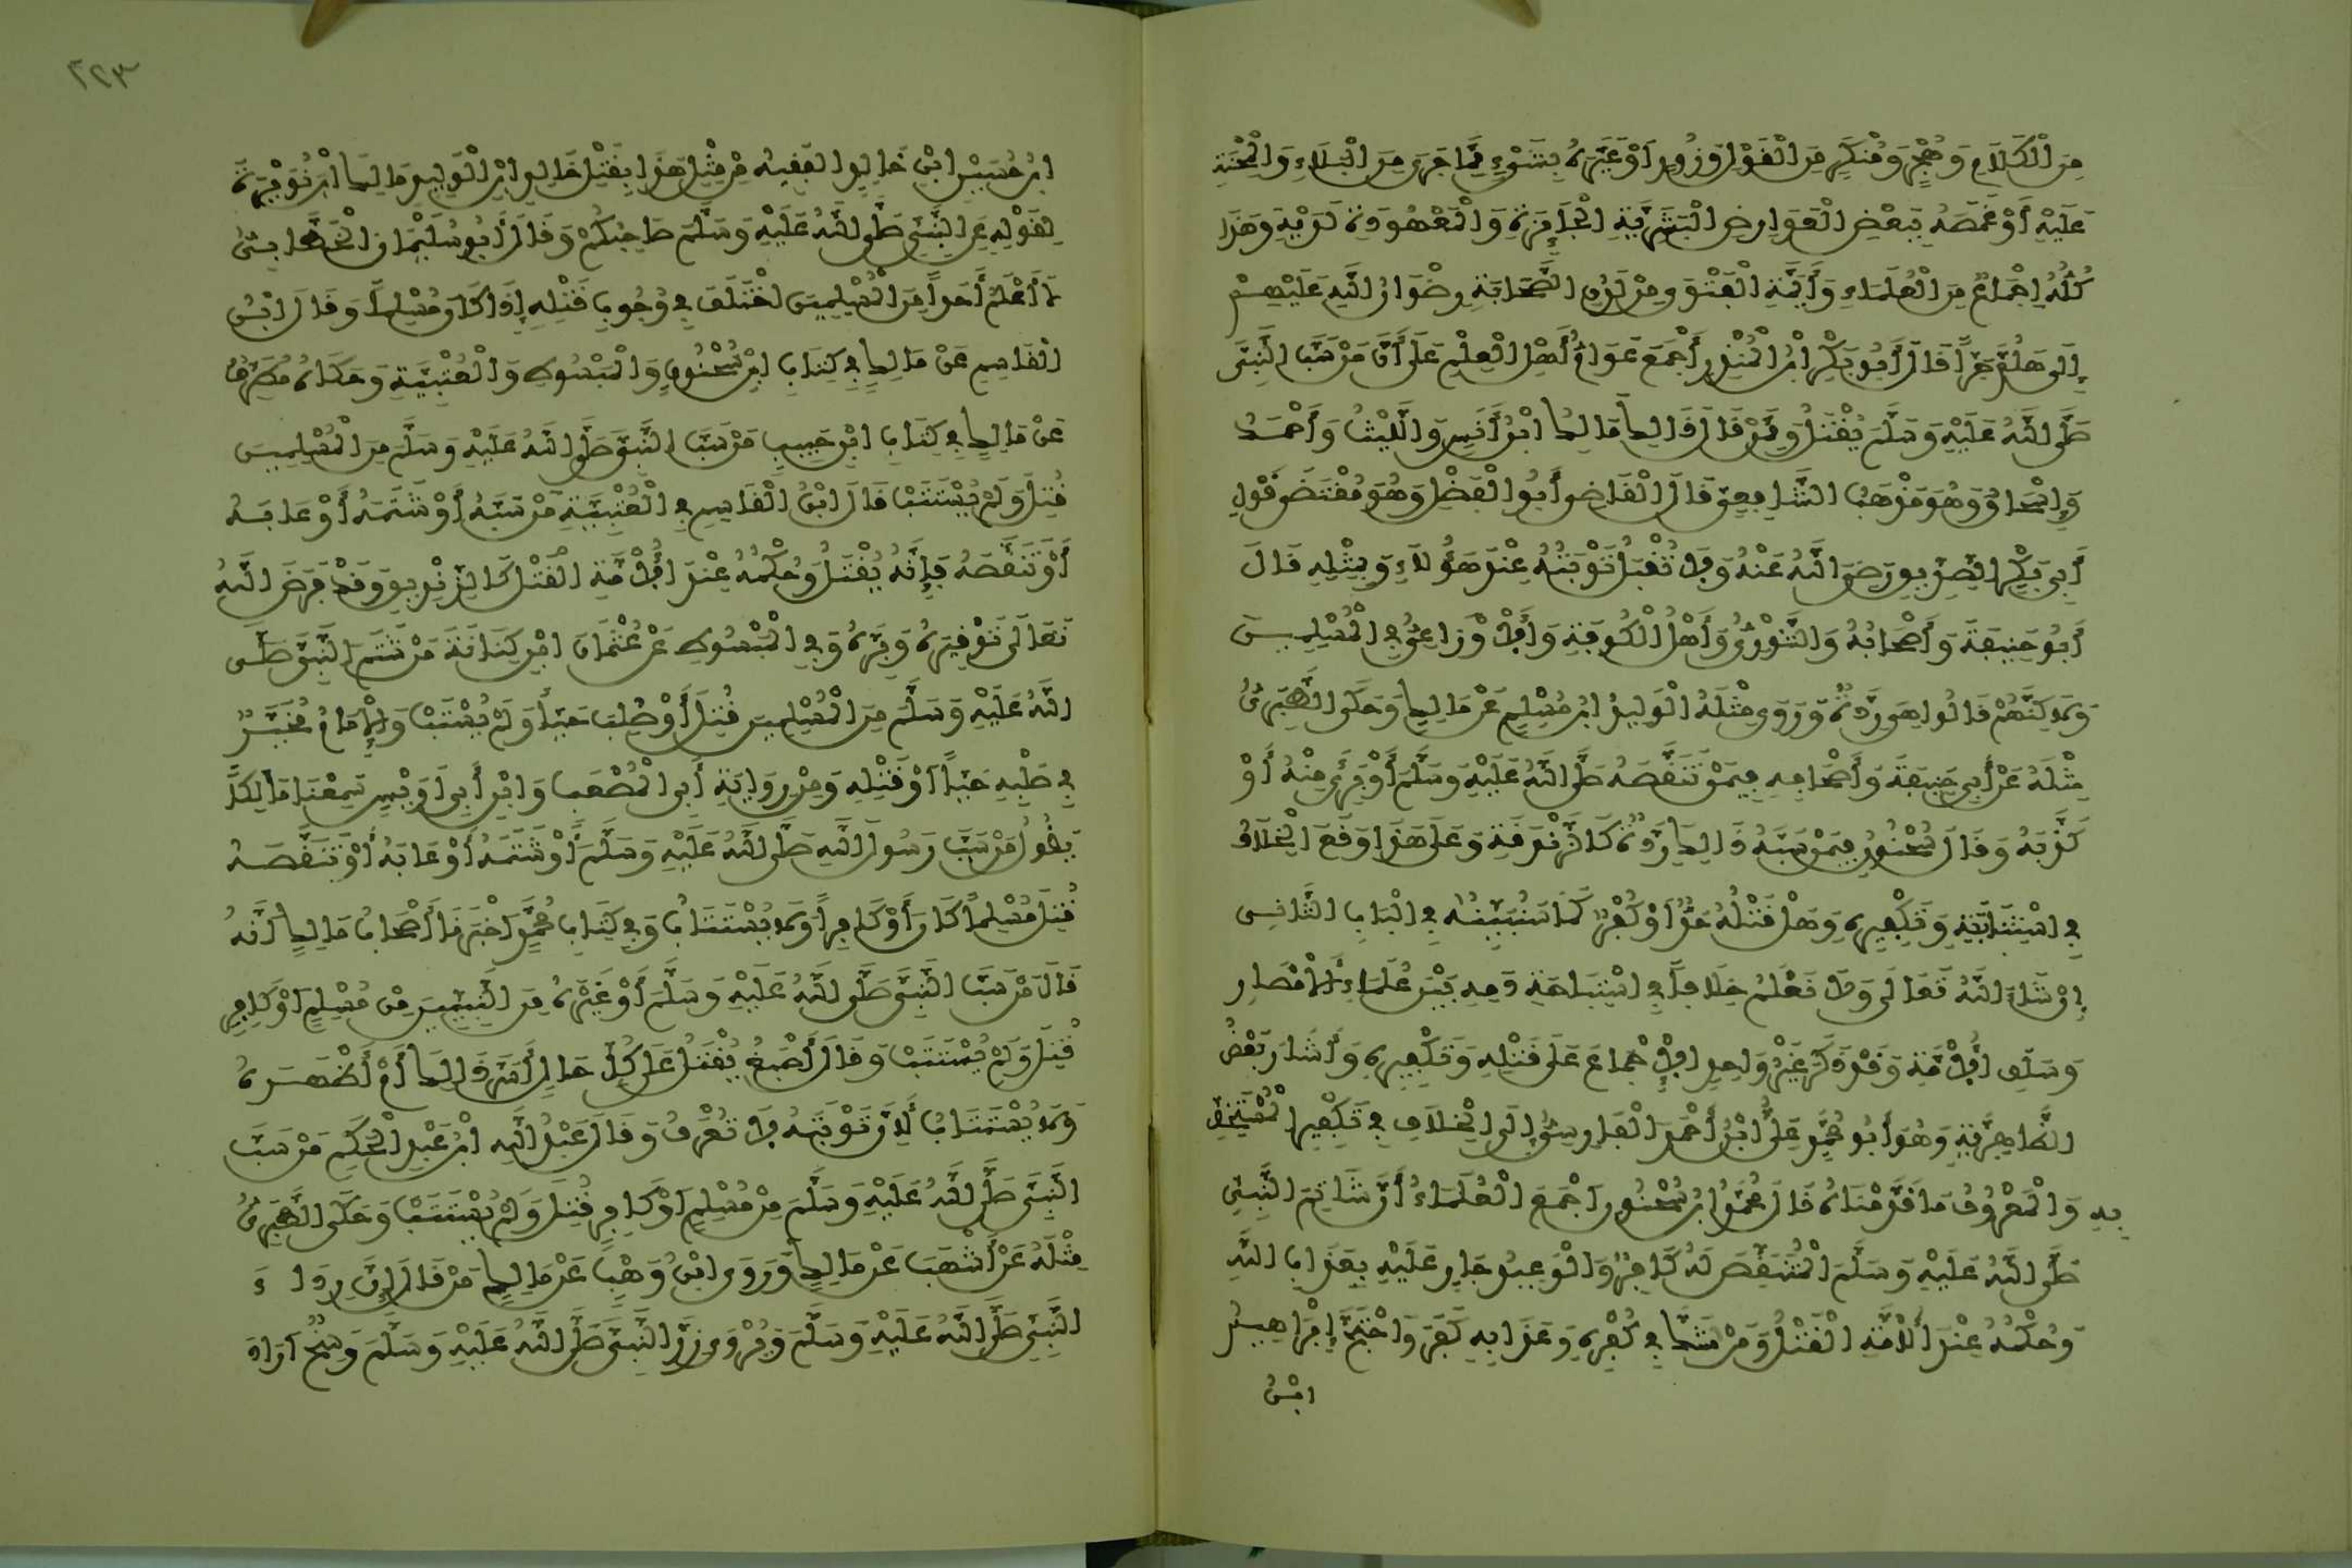 مِنَ الْكَلَامِ وَهُجْرٍ وَمُنْكَرٍ مِنَ الْقَوْلِ وَزُورٍ اَوْ عَيَّرَهُ بِشَيْءٍ مِمَّا جَرَى مِنَ الْبَلَاءِ وَالْمِحْنَةِ
عَلَيْهِ أَوْ غَمَصَهُ بِبَعْضِ الْعَوَارِضِ الْبَشَرِيَّةِ الْجَائِزَةِ وَالْمَعْهُودَةِ لَدَيْهِ وَهَذَا
كُلُّهُ إِجْمَاعٌ مِنَ الْعُلَمَاءِ وَأَئِمَّةِ الْفَتْوَى مِنْ لَدُنِ الصَّحَابَةِ رِضْوَانُ اللَّهِ عَلَيْهِمْ
إِلَى هَلُمَّ جَرّاً قَالَ أَبُو بَكْرِ ابْنُ الْمُنْذِرِ أَجْمَعَ عَوَامُّ أَهْلِ الْعِلْمِ عَلَى أَنَّ مَنْ سَبَّ النَّبِيَّ
صَلَّى اللَّهُ عَلَيْهِ وَسَلَّمَ يُقْتَلُ وَمِمَّنْ قَالَ ذَالِكَ مَالِكُ ابْنُ أَنَسٍ وَاللَّيْثُ وَأَحْمَدُ
وَإِسْحَاقُ وَهُوَ مَذْهَبُ الشَّافِعِيِّ قَالَ الْقَاضِي أَبُو الْفَضْلِ وَهُوَ مُقْتَضَى قَوْلِ
أَبِي بَكْرٍ الصِّدِّيقِ رَضِيَ اللَّهُ عَنْهُ وَلَا تُقْبَلُ تَوْبَتُهُ عِنْدَ هَؤُلَاءِ وَبِمِثْلِهِ قَالَ
أَبُو حَنِيفَةَ وَأَصْحَابُهُ وَالثَّوْرِيُّ وَأَهْلُ الْكُوفَةِ وَالْأَوْزَاعِيُّ فِي الْمُسْلِمِينَ
وَلَاكِنَّهُمْ قَالُوا هِيَ رِدَّةٌ وَرَوَى مِثْلَهُ الْوَلِيدُ ابْنُ مُسْلِمٍ عَنْ مَالِكٍ وَحَكَى الطَّبَرِيُّ
مِثْلَهُ عَنْ أَبِي حَنِيفَةَ وَأَصْحَابِهِ فِيمَنْ تَنَقَّصَهُ صَلَّى اللَّهُ عَلَيْهِ وَسَلَّمَ أَوْ بَرِئَ مِنْهُ أَوْ
كَذَّبَهُ وَقَالَ سُحْنُونٌ فِيمَنْ سَبَّهُ ذَالِكَ رِدَّةٌ كَالزَّنْدَقَةِ وَعَلَى هَذَا وَقَعَ الْخِلَافُ
فِي اسْتِتَابَتِهِ وَتَكْفِيرِهِ وَهَلْ قَتْلُهُ حَدٌّ أَوْ كُفْرٌ كَمَا سَنُبَيِّنُهُ فِي الْبَابِ الثَّانِي
إِنْ شَاءَ اللَّهُ تَعَالَى وَلَا نَعْلَمُ خِلَافاً فِي اسْتِبَاحَةِ دَمِهِ بَيْنَ عُلَمَاءِ الْأَمْصَارِ
وَسَلَفِ الْأُمَّةِ وَقَدْ ذَكَرَ غَيْرُ وَاحِدٍ الْإِجْمَاعَ عَلَى قَتْلِهِ وَتَكْفِيرِهِ وَأَشَارَ بَعْضُ
الظَّاهِرِيَّةِ وَهُوَ أَبُو مُحَمَّدٍ عَلِيُّ ابْنُ أَحْمَدَ الْفَارِسِيُّ إِلَى الْخِلَافِ فِي تَكْفِيرِ الْمُسْتَخِفِّ
بِهِ وَالْمَعْرُوفُ مَا قَدَّمْنَاهُ قَالَ مُحَمَّدُ ابْنُ سُحْنُونٍ أَجْمَعَ الْعُلَمَاءُ أَنَّ شَاتِمَ النَّبِيِّ
صَلَّى اللَّهُ عَلَيْهِ وَسَلَّمَ الْمُتَنَقِّصَ لَهُ كَافِرٌ وَالْوَعِيدُ جَارٍ عَلَيْهِ بِعَذَابِ اللَّهِ
وَحُكْمُهُ عِنْدَ الْأُمَّةِ الْقَتْلُ وَمَنْ شَكَّ فِي كُفْرِهِ وَعَذَابِهِ كَفَرَ وَاحْتَجَّ إِبْرَاهِيمُ
ابْنُ
٢٢٣
ابْنُ حُسَيْنِ ابْنِ خَالِدٍ الْفَقِيهُ فِي مِثْلِ هَذَا بِقَتْلِ خَالِدِ ابْنِ الْوَلِيدِ مَالِكَ ابْنَ نُوَيْرَةَ
لِقَوْلِهِ عَنِ النَّبِيِّ صَلَّى اللَّهُ عَلَيْهِ وَسَلَّمَ صَاحِبُكُمْ وَقَالَ أَبُو سُلَيْمَانَ الْخَطَّابِيُّ
لَا أَعْلَمُ أَحَداً مِنَ الْمُسْلِمِينَ اخْتَلَفَ فِي وُجُوبِ قَتْلِهِ إِذَا كَانَ مُسْلِماً وَقَالَ ابْنُ
الْقَاسِمِ عَنْ مَالِكٍ فِي كِتَابِ ابْنِ سُحْنُونٍ وَالْمَبْسُوطِ وَالْعُتْبِيَّةِ وَحَكَاهُ مُطَرِّفٌ
عَنْ مَالِكٍ فِي كِتَابِ ابْنِ حَبِيبٍ مَنْ سَبَّ النَّبِيَّ صَلَّى اللَّهُ عَلَيْهِ وَسَلَّمَ مِنَ الْمُسْلِمِينَ
قُتِلَ وَلَمْ يُسْتَتَبْ قَالَ ابْنُ الْقَاسِمِ فِي الْعُتْبِيَّةِ مَنْ سَبَّهُ أَوْ شَتَمَهُ أَوْ عَابَهُ
أَوْ تَنَقَّصَهُ فَإِنَّهُ يُقْتَلُ وَحُكْمُهُ عِنْدَ الْأُمَّةِ الْقَتْلُ كَالزِّنْدِيقِ وَقَدْ فَرَضَ اللَّهُ
تَعَالَى تَوْقِيرَهُ وَبِرَّهُ وَفِي الْمَبْسُوطِ عَنْ عُثْمَانَ ابْنِ كِنَانَةَ مَنْ شَتَمَ النَّبِيَّ صَلَّى
اللَّهُ عَلَيْهِ وَسَلَّمَ مِنَ الْمُسْلِمِينَ قُتِلَ أَوْ صُلِبَ حَيّاً وَلَمْ يُسْتَتَبْ وَالْإِمَامُ مُخَيَّرٌ
فِي صَلْبِهِ حَيّاً أَوْ قَتْلِهِ وَمِنْ رِوَايَةِ أَبِي الْمُصْعَبِ وَابْنِ أَبِي أُوَيْسٍ سَمِعْنَا مَالِكاً
يَقُولُ مَنْ سَبَّ رَسُولَ اللَّهِ صَلَّى اللَّهُ عَلَيْهِ وَسَلَّمَ أَوْ شَتَمَهُ أَوْ عَابَهُ أَوْ تَنَقَّصَهُ
قُتِلَ مُسْلِماً كَانَ أَوْ كَافِراً وَلَا يُسْتَتَابُ وَفِي كِتَابِ مُحَمَّدٍ أَخْبَرَنَا أَصْحَابُ مَالِكٍ أَنَّهُ
قَالَ مَنْ سَبَّ النَّبِيَّ صَلَّى اللَّهُ عَلَيْهِ وَسَلَّمَ أَوْ غَيْرَهُ مِنَ النَّبِيِّينَ مِنْ مُسْلِمٍ أَوْ كَافِرٍ
قُتِلَ وَلَمْ يُسْتَتَبْ وَقَالَ أَصْبَغُ يُقْتَلُ عَلَى كُلِّ حَالٍ أَسَرَّ ذَالِكَ أَمْ أَظْهَرَهُ
وَلَا يُسْتَتَابُ لِأَنَّ تَوْبَتَهُ لَا تُعْرَفُ وَقَالَ عَبْدُ اللَّهِ ابْنُ عَبْدِ الْحَكَمِ مَنْ سَبَّ
النَّبِيَّ صَلَّى اللَّهُ عَلَيْهِ وَسَلَّمَ مِنْ مُسْلِمٍ أَوْ كَافِرٍ قُتِلَ وَلَمْ يُسْتَتَبْ وَحَكَى الطَّبَرِيُّ
مِثْلَهُ عَنْ أَشْهَبَ عَنْ مَالِكٍ وَرَوَى ابْنُ وَهْبٍ عَنْ مَالِكٍ مَنْ قَالَ إِنَّ رِدَاءَ
النَّبِيِّ صَلَّى اللَّهُ عَلَيْهِ وَسَلَّمَ وَيُرْوَى زِرَّ النَّبِيِّ صَلَّى اللَّهُ عَلَيْهِ وَسَلَّمَ وَسِخٌ أَرَادَ